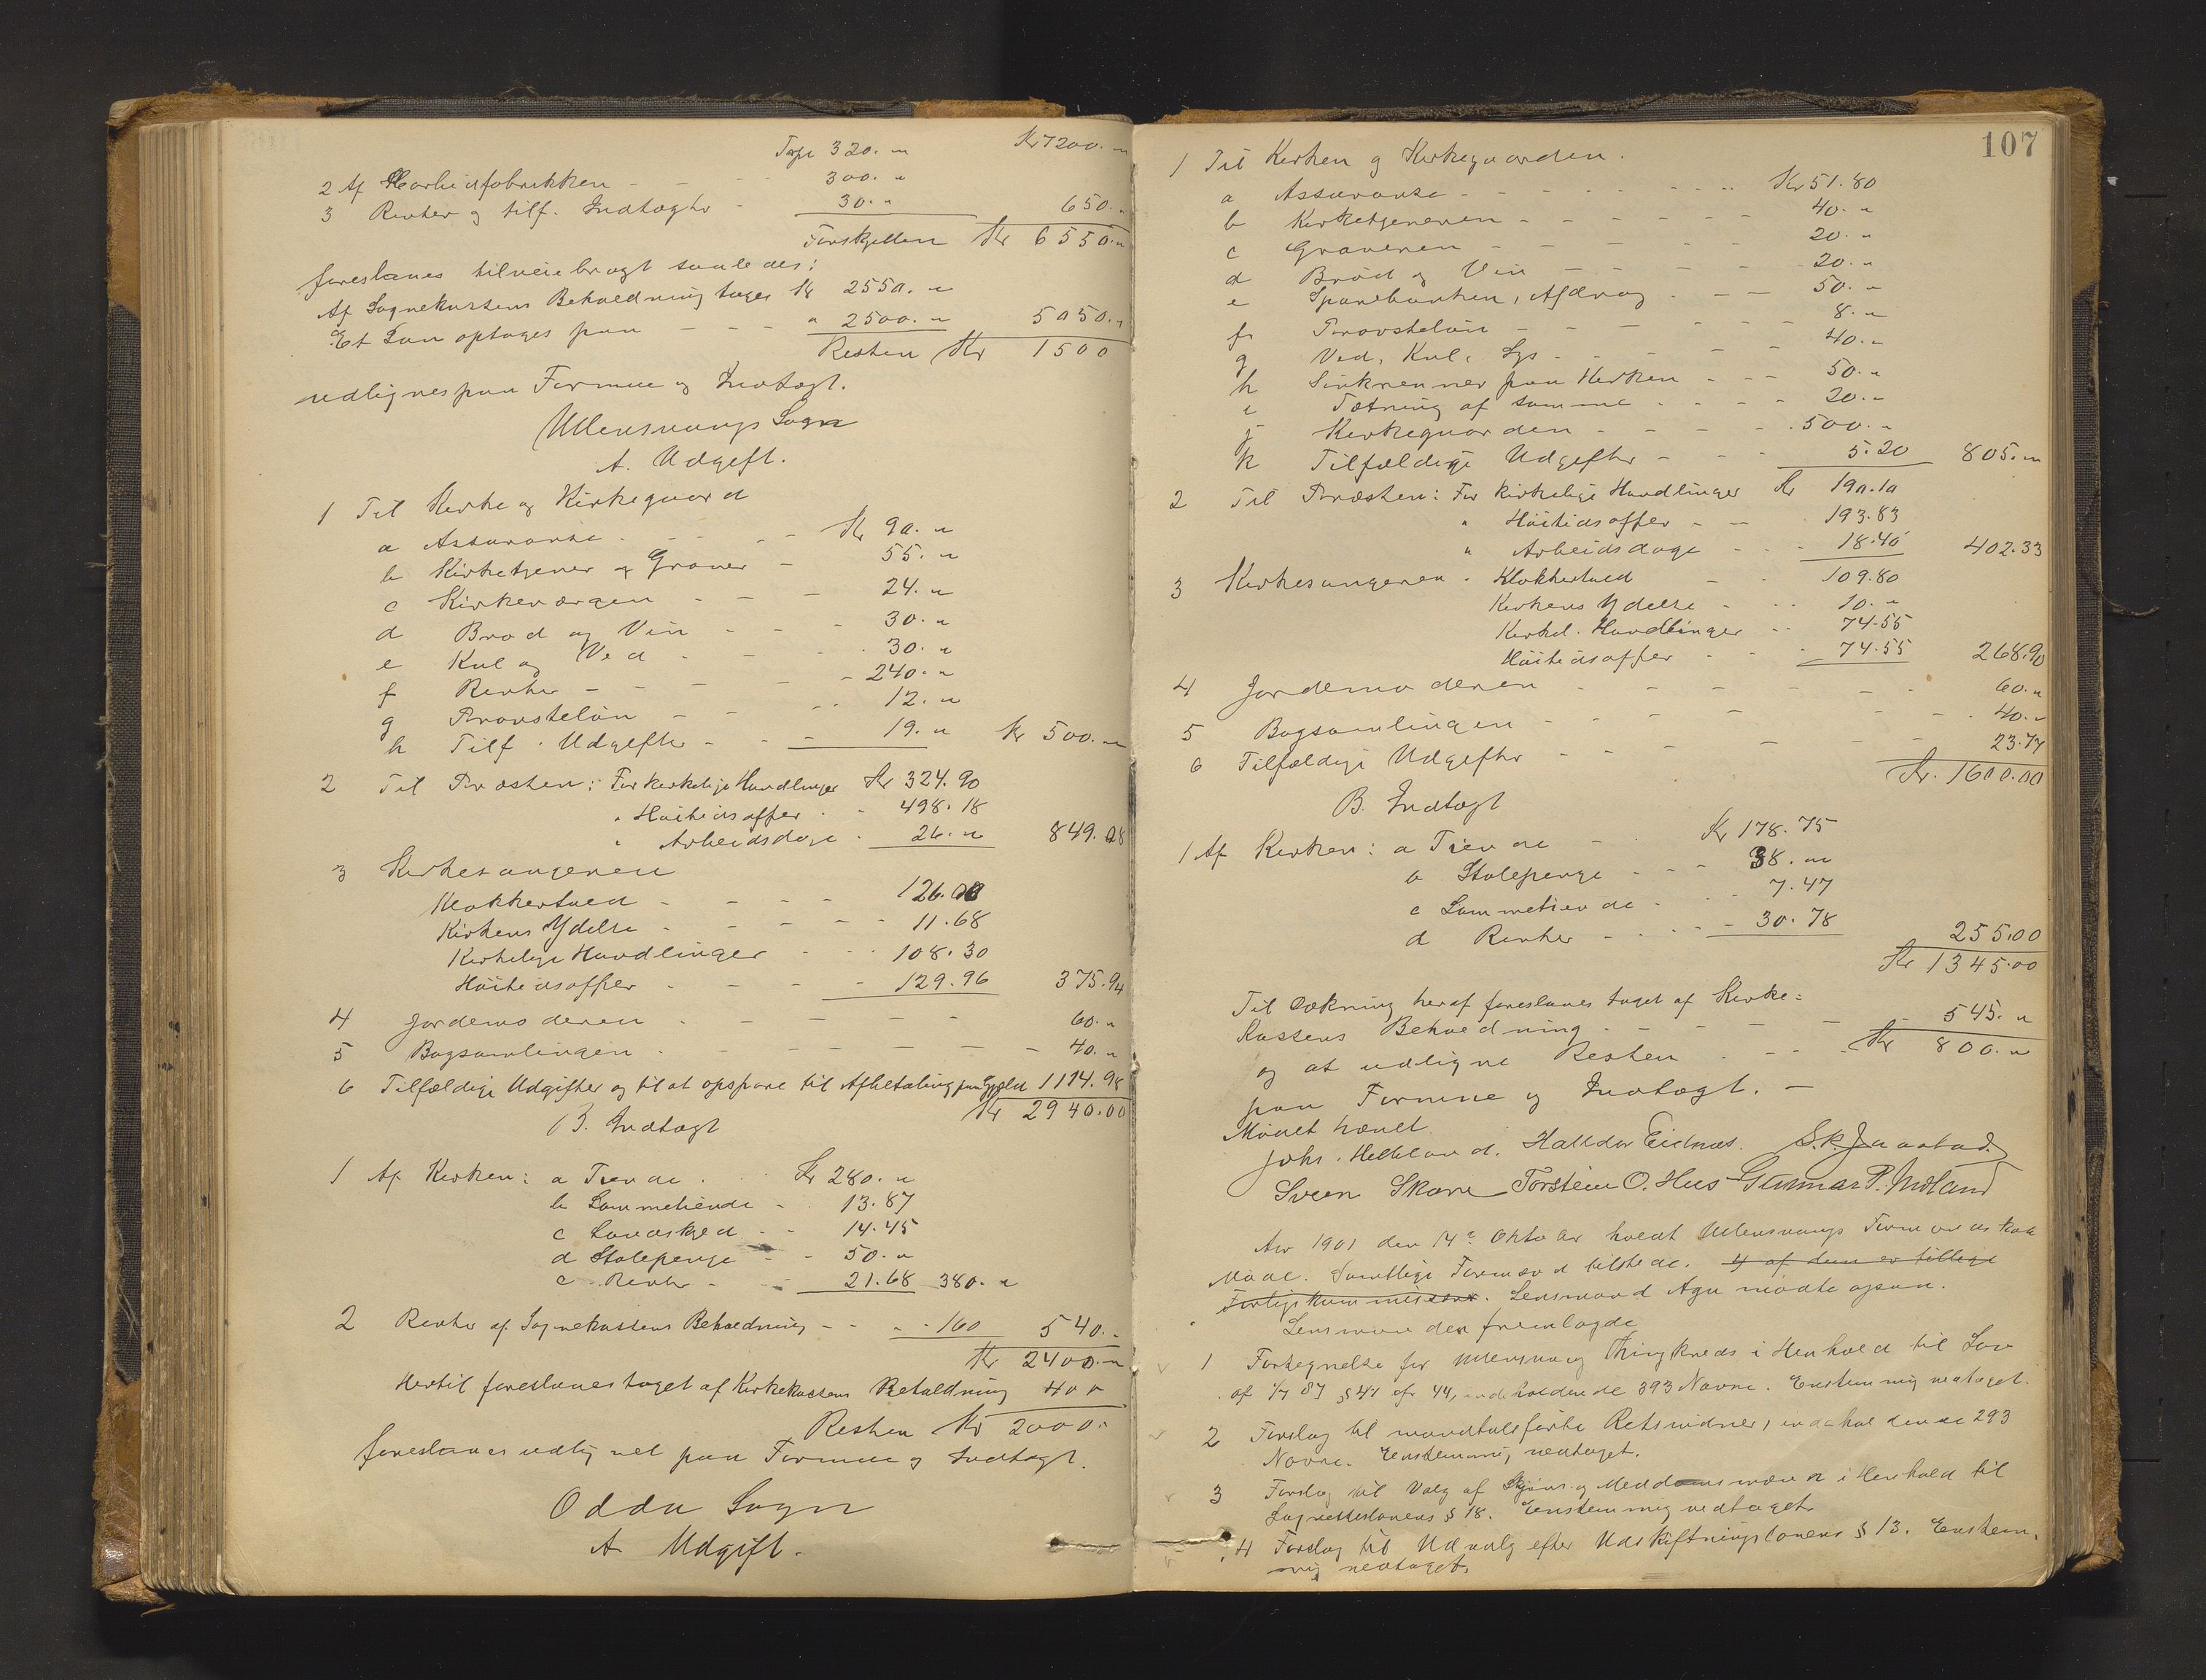 320. " Kr 7200. "
2 Af fabrikken - - 300. "
3 Renter og tilf. Indtægter - 30. " 650. "
Forskjellen Kr 6550. "
foreslaaes tilveiebragt saaledes:
Af Sognekassens Beholdning tages Kr 2550. "
Et Laan optages paa - - - " 2500. " 5050. "
Resten Kr 1500
udlignes paa Formue og Indtægt.
Ullensvangs Sogn
A. Udgift.
1 Til Kirke og Kirkegaard
a Assuranse - - - Kr 90. "
b Kirketjener og Graver - 55. "
c Kirkeværgen - - - 24. "
d Brød og Vin - - - 30. "
e Kul og Ved - - - 30. "
f Renter - - - - 240. "
g Provsteløn - - - 12. "
h Tilf. Udgifter - - - 19. " Kr 500. "
2 Til Præsten: For kirkelige Handlinger Kr 324.90
" Høitidsoffer - - 498.18
" Arbeidsdage - 26. " 849.08
3 Kirkesangeren
Klokkertold - - - - 126.00
Kirkens Ydelse - - - - 11.68
Kirkelige Handlinger - - 108.30
Høitidsoffer - - - - 129.96 375.94
4 Jordemoderen - - - - - 60. "
5 Bogsamlingen - - - - - - 40. "
6 Tilfældige Udgifter og til at opspare til Afbetaling paa Gjæld 1114.98
Kr 2940.00
B. Indtægt
1 Af Kirken: a Tiende - - Kr 280. "
b Lammetiende - 13.87
c Landskyld - - 14.45
d Stolepenge - - 50. "
e Renter - - 21.68 380. "
2 Renter af Sognekassens Beholdning - - - 160 540. "
Kr 2400. "
Hertil foreslaaes taget af Kirkekassens Beholdning 400
Resten Kr 2000. "
foreslaaes udlignet paa Formue og Indtægt.
Odda Sogn
A Udgift.
107
1 Til Kirken og Kirkegaarden.
a Assuranse - - - - - Kr 51.80
b Kirketjeneren - - - - - 40. "
c Graveren - - - - - 20. "
d Brød og Vin - - - - 20. "
e Sparebanken, Afdrag - - - 50. "
f Provsteløn - - - - - 8. "
g Ved, Kul, Lys - - - - 40. "
h Sinkrenner paa Kirken - - - 50. "
i Tætning af samme - - - - 20. "
j Kirkegaarden - - - - 500. "
k Tilfældige Udgifter - - - 5.20 805. "
2 Til Præsten: For kirkelige Handlinger Kr 190.10
" Høitidsoffer - - 193.83
" Arbeidsdage - - 18.40 402.33
3 Kirkesangeren. Klokkertold - - 109.80
Kirkens Ydelse - - - 10. "
Kirkel. Handlinger - - 74.55
Høitidsoffer - - - 74.55 268.90
4 Jordemoderen - - - - - - 60. "
5 Bogsamlingen - - - - - - 40. "
6 Tilfældige Udgifter - - - - - 23.77
Kr. 1600.00
B. Indtægt
1 Af Kirken: a Tiende - - Kr 178.75
b Stolepenge - - - 38. "
c Lammetiende - - 7.47
d Renter - - - - 30.78
255.00
Kr 1345.00
Til Dækning heraf foreslaaes taget af Kirke=
kassens Beholdning - - - - - 545. "
og at udligne Resten - - - Kr 800. "
paa Formue og Indtægt. -
Mødet hævet
Johs. Helleland. Halldor Eidnæs. S. K. Jaastad.
Sveen Skare Torstein O. Hus Gunnar P. Moland
Aar 1901 den 14de Oktober holdt Ullensvangs Formandskab
Møde. Samtlige Formænd tilstede. 4 af dem er tillige
Forligskommissær. Lensmand Aga mødte ogsaa.
Lensmanden fremlagde
1 Fortegnelse for Ullensvang Thingkreds i Henhold til Lov
af 1/7 87 § 41 cfr 44, indeholdende 393 Navne. Enstemmig vedtaget.
2 Forslag til mandtalsførte Retsvidner, indeholdende 293
Navne. Enstemmig vedtaget.
3 Forslag til Valg af Skjøns- og Meddomsmænd i Henhold til
§ 18. Enstemmig vedtaget
4 Forslag til Udvalg efter Udskiftningslovens § 13. Enstem-
mig vedtaget.